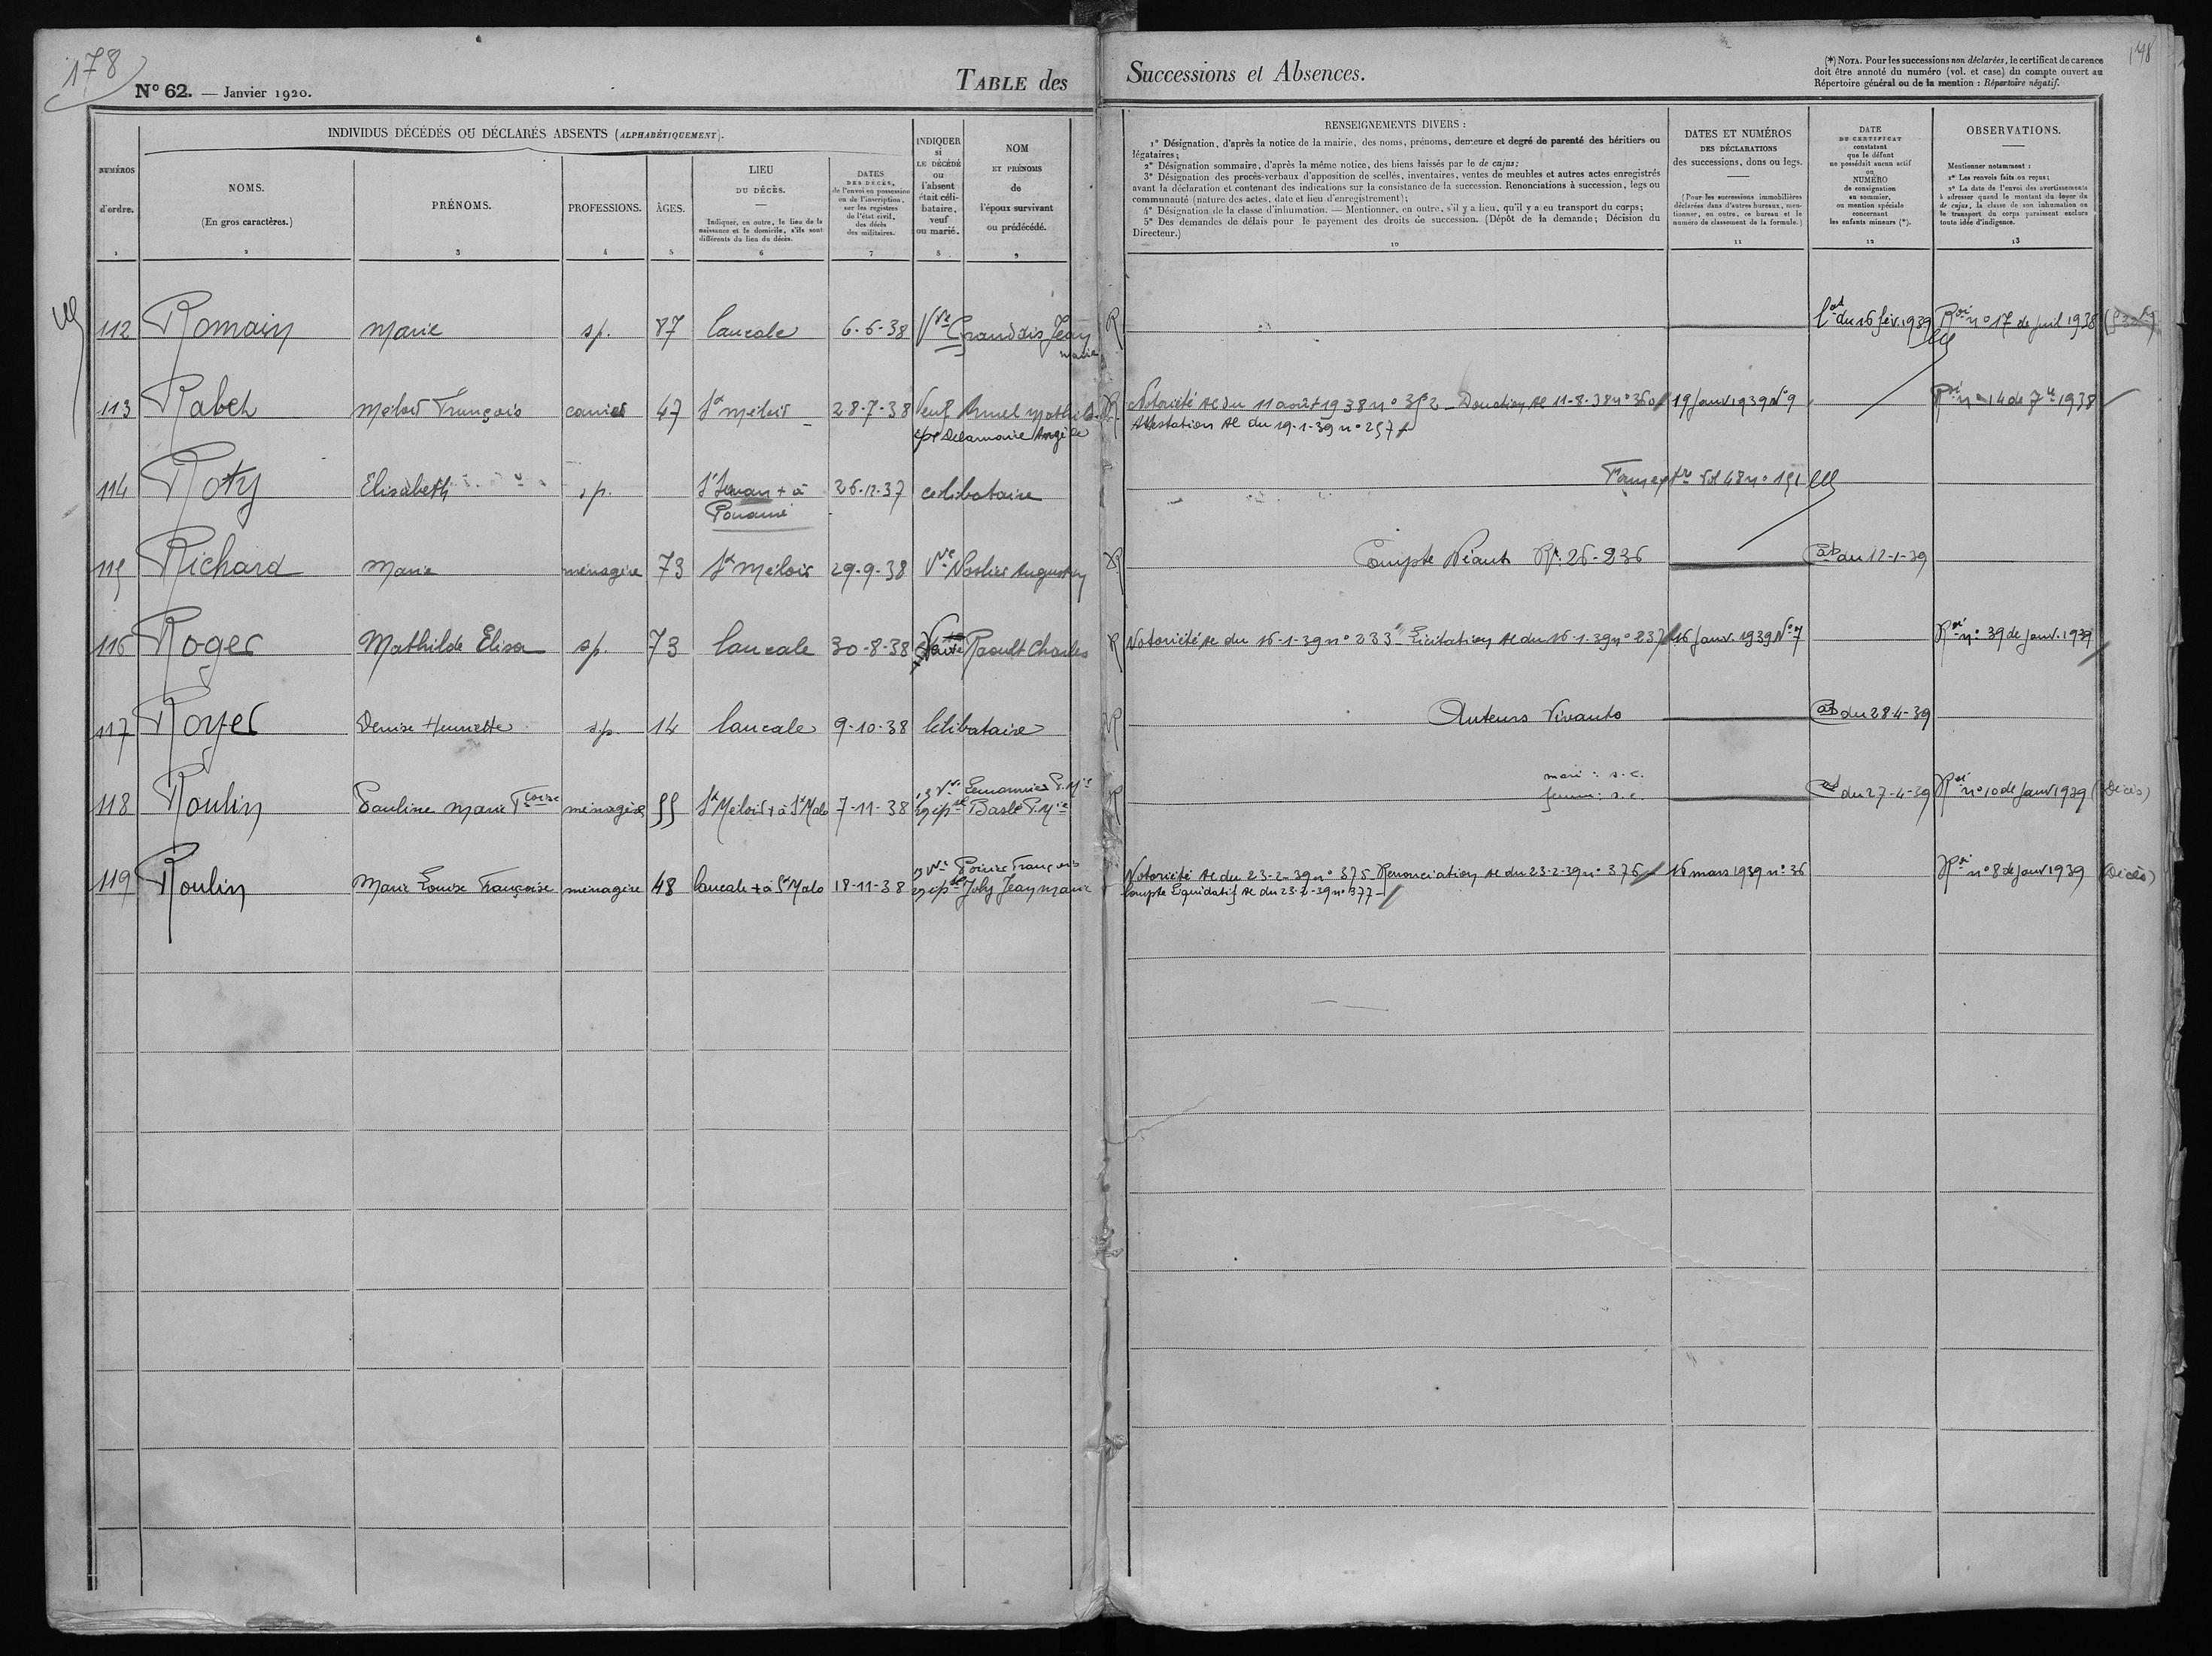 178
178
N° 62. — Janvier 1920.
TABLE des Successions et Absences.
(*) NOTA. Pour les successions non déclarées, le certificat de carence
doit être annoté du numéro (vol. et case) du compte ouvert au
Répertoire général ou de la mention : Répertoire négatif.
NUMÉROS
d'ordre.
1
INDIVIDUS DÉCÉDÉS OU DÉCLARÉS ABSENTS (ALPHABÉTIQUEMENT).
NOMS.
(En gros caractères.)
2
PRÉNOMS.
3
PROFESSIONS.
4
ÂGES.
5
LIEU
DU DÉCÈS.
Indiquer, en outre, le lieu de la
naissance et le domicile, s'ils sont
différents du lieu du décès.
6
DATES
DES DÉCÈS,
de l'envoi en possession
ou de l'inscription,
sur les registres
de l'état civil,
des décès
des militaires.
7
INDIQUER
si
LE DÉCÉDÉ
ou
l'absent
était céli-
bataire,
veuf
ou marié.
8
NOM
ET PRÉNOMS
de
l'époux survivant
ou prédécédé.
9
RENSEIGNEMENTS DIVERS :
1° Désignation, d'après la notice de la mairie, des noms, prénoms, demeure et degré de parenté des héritiers ou
légataires;
2° Désignation sommaire, d'après la même notice, des biens laissés par le de cujus;
3° Désignation des procès-verbaux d'apposition de scellés, inventaires, ventes de meubles et autres actes enregistrés
avant la déclaration et contenant des indications sur la consistance de la succession. Renonciations à succession, legs ou
communauté (nature des actes, date et lieu d'enregistrement);
4° Désignation de la classe d'inhumation. — Mentionner, en outre, s'il y a lieu, qu'il y a eu transport du corps;
5° Des demandes de délais pour le payement des droits de succession. (Dépôt de la demande; Décision du
Directeur.)
10
DATES ET NUMÉROS
DES DÉCLARATIONS
des successions, dons ou legs.
(Pour les successions immobilières
déclarées dans d'autres bureaux, men-
tionner, en outre, ce bureau et le
numéro de classement de la formule.)
11
DATE
DU CERTIFICAT
constatant
que le défunt
ne possédait aucun actif
ou
NUMÉRO
de consignation
au sommier,
ou mention spéciale
concernant
les enfants mineurs (*).
12
OBSERVATIONS.
Mentionner notamment :
1° Les renvois faits ou reçus;
2° La date de l'envoi des avertissements
à adresser quand le montant du loyer du
de cujus, la classe de son inhumation ou
le transport du corps paraissent exclure
toute idée d'indigence.
13
112 Romain Marie sp. 87 Cancale 6-6-38 Vve Grandais Jean Marie R Cat du 16 fév. 1939 Roi n° 17 de juil 1938
113 Rabet Méloir François 47 St Méloir 28-7-38 Veuf Mathilde Notoriété Ac du 11 août 1938 n° 352 - Donation Ac 11-8-38 n° 360 19 Janv 1939 N° 9 Roi n° 14 de 7bre 1938
épx Delamaire Angèle Attestation Ac du 19-1-39 n° 257
114 Roty Elisabeth sp. St Servan + à 26-12-37 celibataire Vol 48 n° 151
Paramé
115 Richard Marie ménagère 73 St Méloir 29-9-38 Vve Augustin R Compte Néant Rre 26-236 Cat du 12-1-39
116 Roger Mathilde Elisa sp. 73 Cancale 30-8-38 Raoult Charles R Notoriété Ac du 16-1-39 n° 233 Licitation Ac du 16-1-39 n° 237 16 Janv. 1939 N° 7 Roi n° 39 de Janv. 1939
117 Royer Denise Henriette sp. 14 Cancale 9-10-38 Célibataire R Auteurs Vivants Cat du 28-4-39
118 Roulin Pauline Marie Fcoise ménagère 55 St Méloir + à St Malo 7-11-38 1) Vve Lemonnier P. Mie
2) épse Baslé P. Mie R mari : s.c.
femme : s.c. Cat du 27-4-39 Roi n° 10 de Janv 1939 (Décès)
119 Roulin Marie Louise Françoise ménagère 48 Cancale + à St Malo 18-11-38 1) Vve Poirier François
2) épse Joly Jean Marie Notoriété Ac du 23-2-39 n° 375 Renonciation Ac du 23-2-39 n° 376 16 mars 1939 n° 36 Roi n° 8 de Janv 1939 (Décès)
Compte Liquidatif Ac du 23-2-39 n° 377